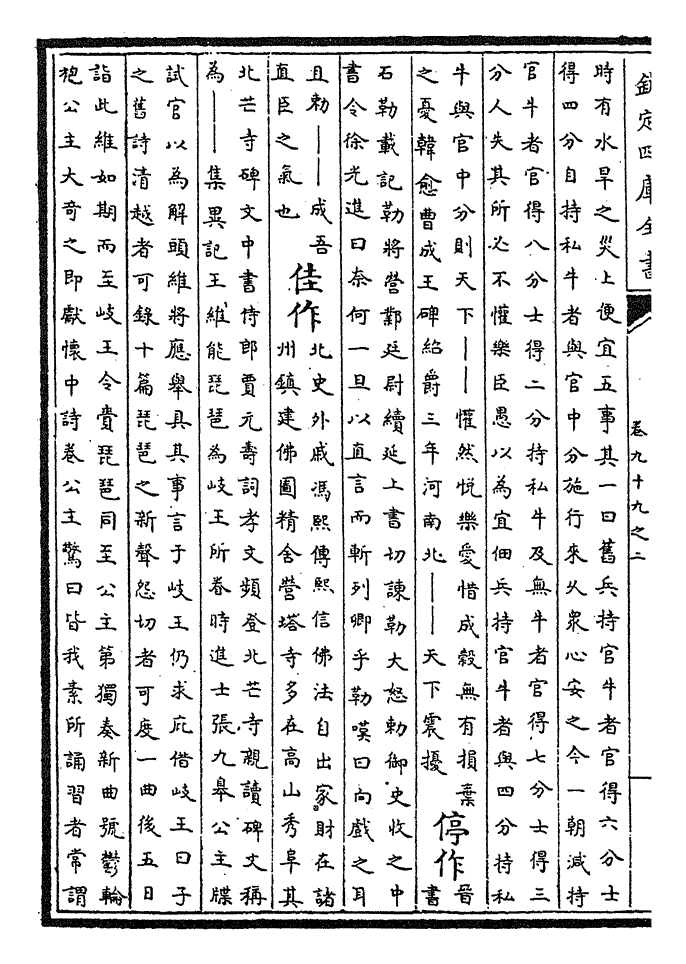 欽定四庫全書
卷九十九之二
時有水旱之災上便宜五事其一曰舊兵持官牛者官得六分士
得四分自持私牛者與官中分施行來久衆心安之今一朝減持
官牛者官得八分士得二分持私牛及無牛者官得七分士得三
分人失其所必不懽樂臣愚以為宜佃兵持官牛者與四分持私
牛與官中分則天下——懽然悅樂愛惜成穀無有損棄
之憂韓愈曹成王碑紹爵三年河南北——天下震擾
停作
晉
書
石勒載記勒將營鄴廷尉續延上書切諫勒大怒勅御史收之中
書令徐光進曰奈何一旦以直言而斬列卿乎勒嘆曰向戲之耳
且勅——成吾
直臣之氣也
佳作
北史外戚馮熙傳熙信佛法自出家財在諸
州鎮建佛圖精舍營塔寺多在高山秀阜其
北芒寺碑文中書侍郎賈元壽詞孝文頻登北芒寺親讀碑文稱
為——集異記王維能琵琶為岐王所眷時進士張九皋公主牒
試官以為解頭維將應舉具其事言于岐王仍求庇借岐王曰子
之舊詩清越者可錄十篇琵琶之新聲怨切者可度一曲後五日
詣此維如期而至岐王令賫琵琶同至公主第獨奏新曲號鬱輪
袍公主大奇之即獻懷中詩卷公主驚曰皆我素所誦習者常謂